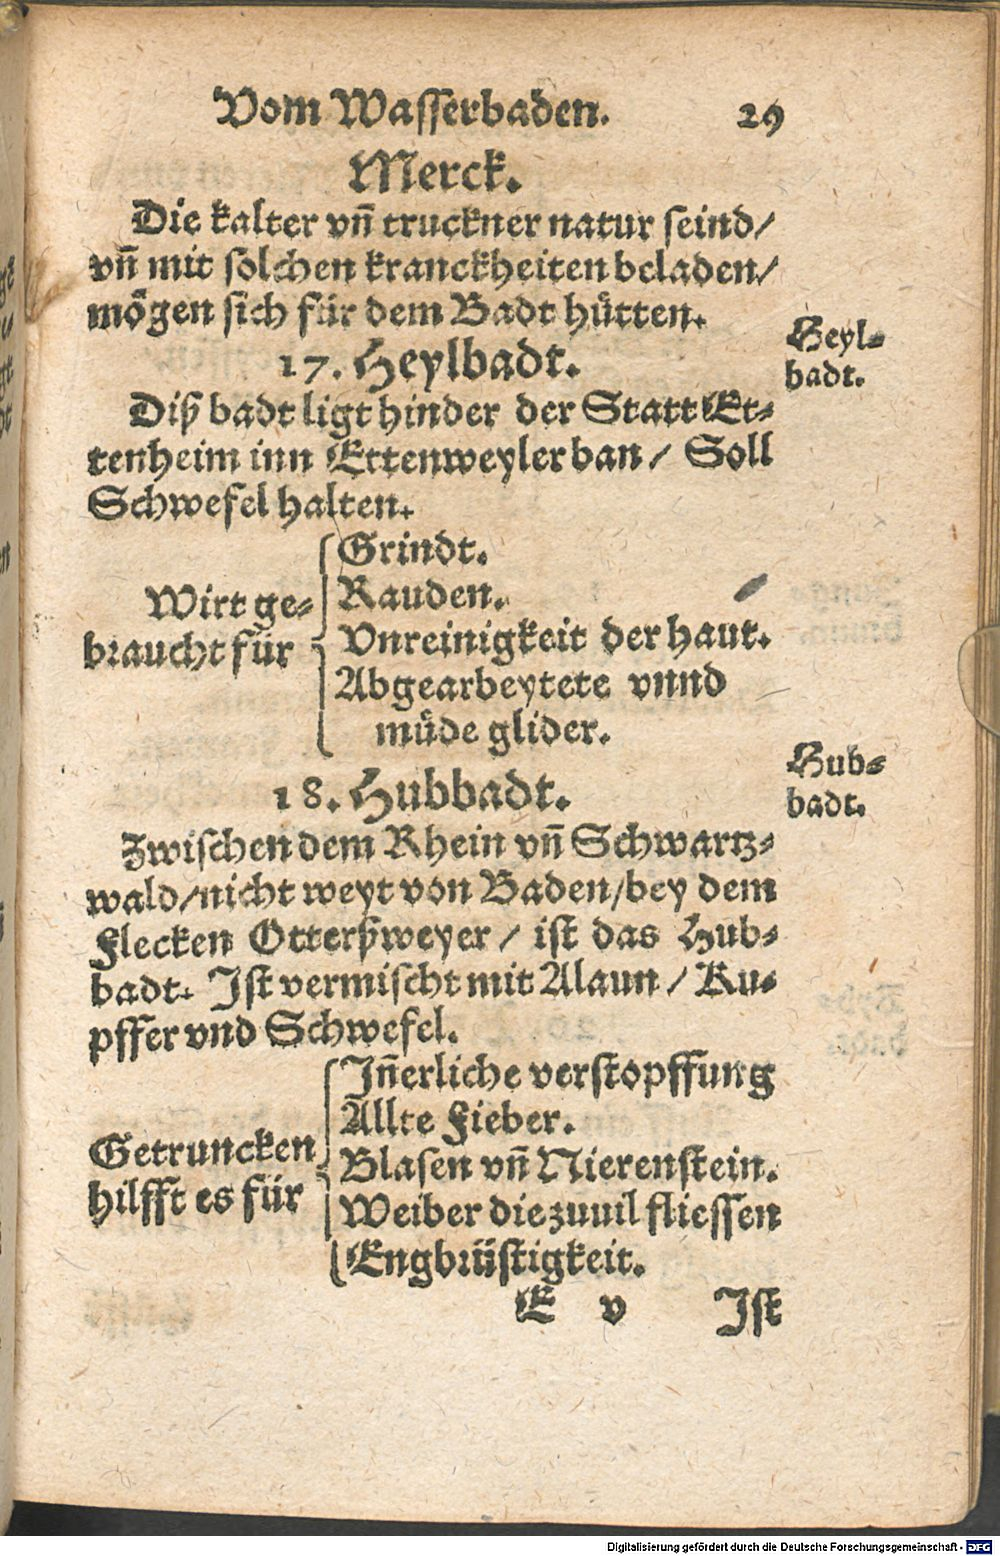 Vom Wasserbaden. 29
Merck.
Die kalter vñ truckner natur seind/
vñ mit solchen kranckheiten beladen/
moͤgen sich für dem Badt huͤtten.
17. Heylbadt.
Heyl-
badt.
Diß badt ligt hinder der Statt Et-
tenheim inn Ettenweyler ban / Soll
Schwefel halten.
Wirt ge-
braucht für
Grindt.
Rauden.
Vnreinigkeit der haut.
Abgearbeytete vnnd
muͤde glider.
18. Hubbadt.
Hub-
badt.
Zwischen dem Rhein vñ Schwartz-
wald/nicht weyt von Baden/bey dem
Flecken Otterßweyer / ist das Hub-
badt. Ist vermischt mit Alaun / Ku-
pffer vnd Schwefel.
Getruncken
hilfft es für
Iñerliche verstopffung
Allte Fieber.
Blasen vñ Nierenstein.
Weiber die zuuil fliessen
Engbrüstigkeit.
E v Ist
Digitalisierung gefördert durch die Deutsche Forschungsgemeinschaft - DFG